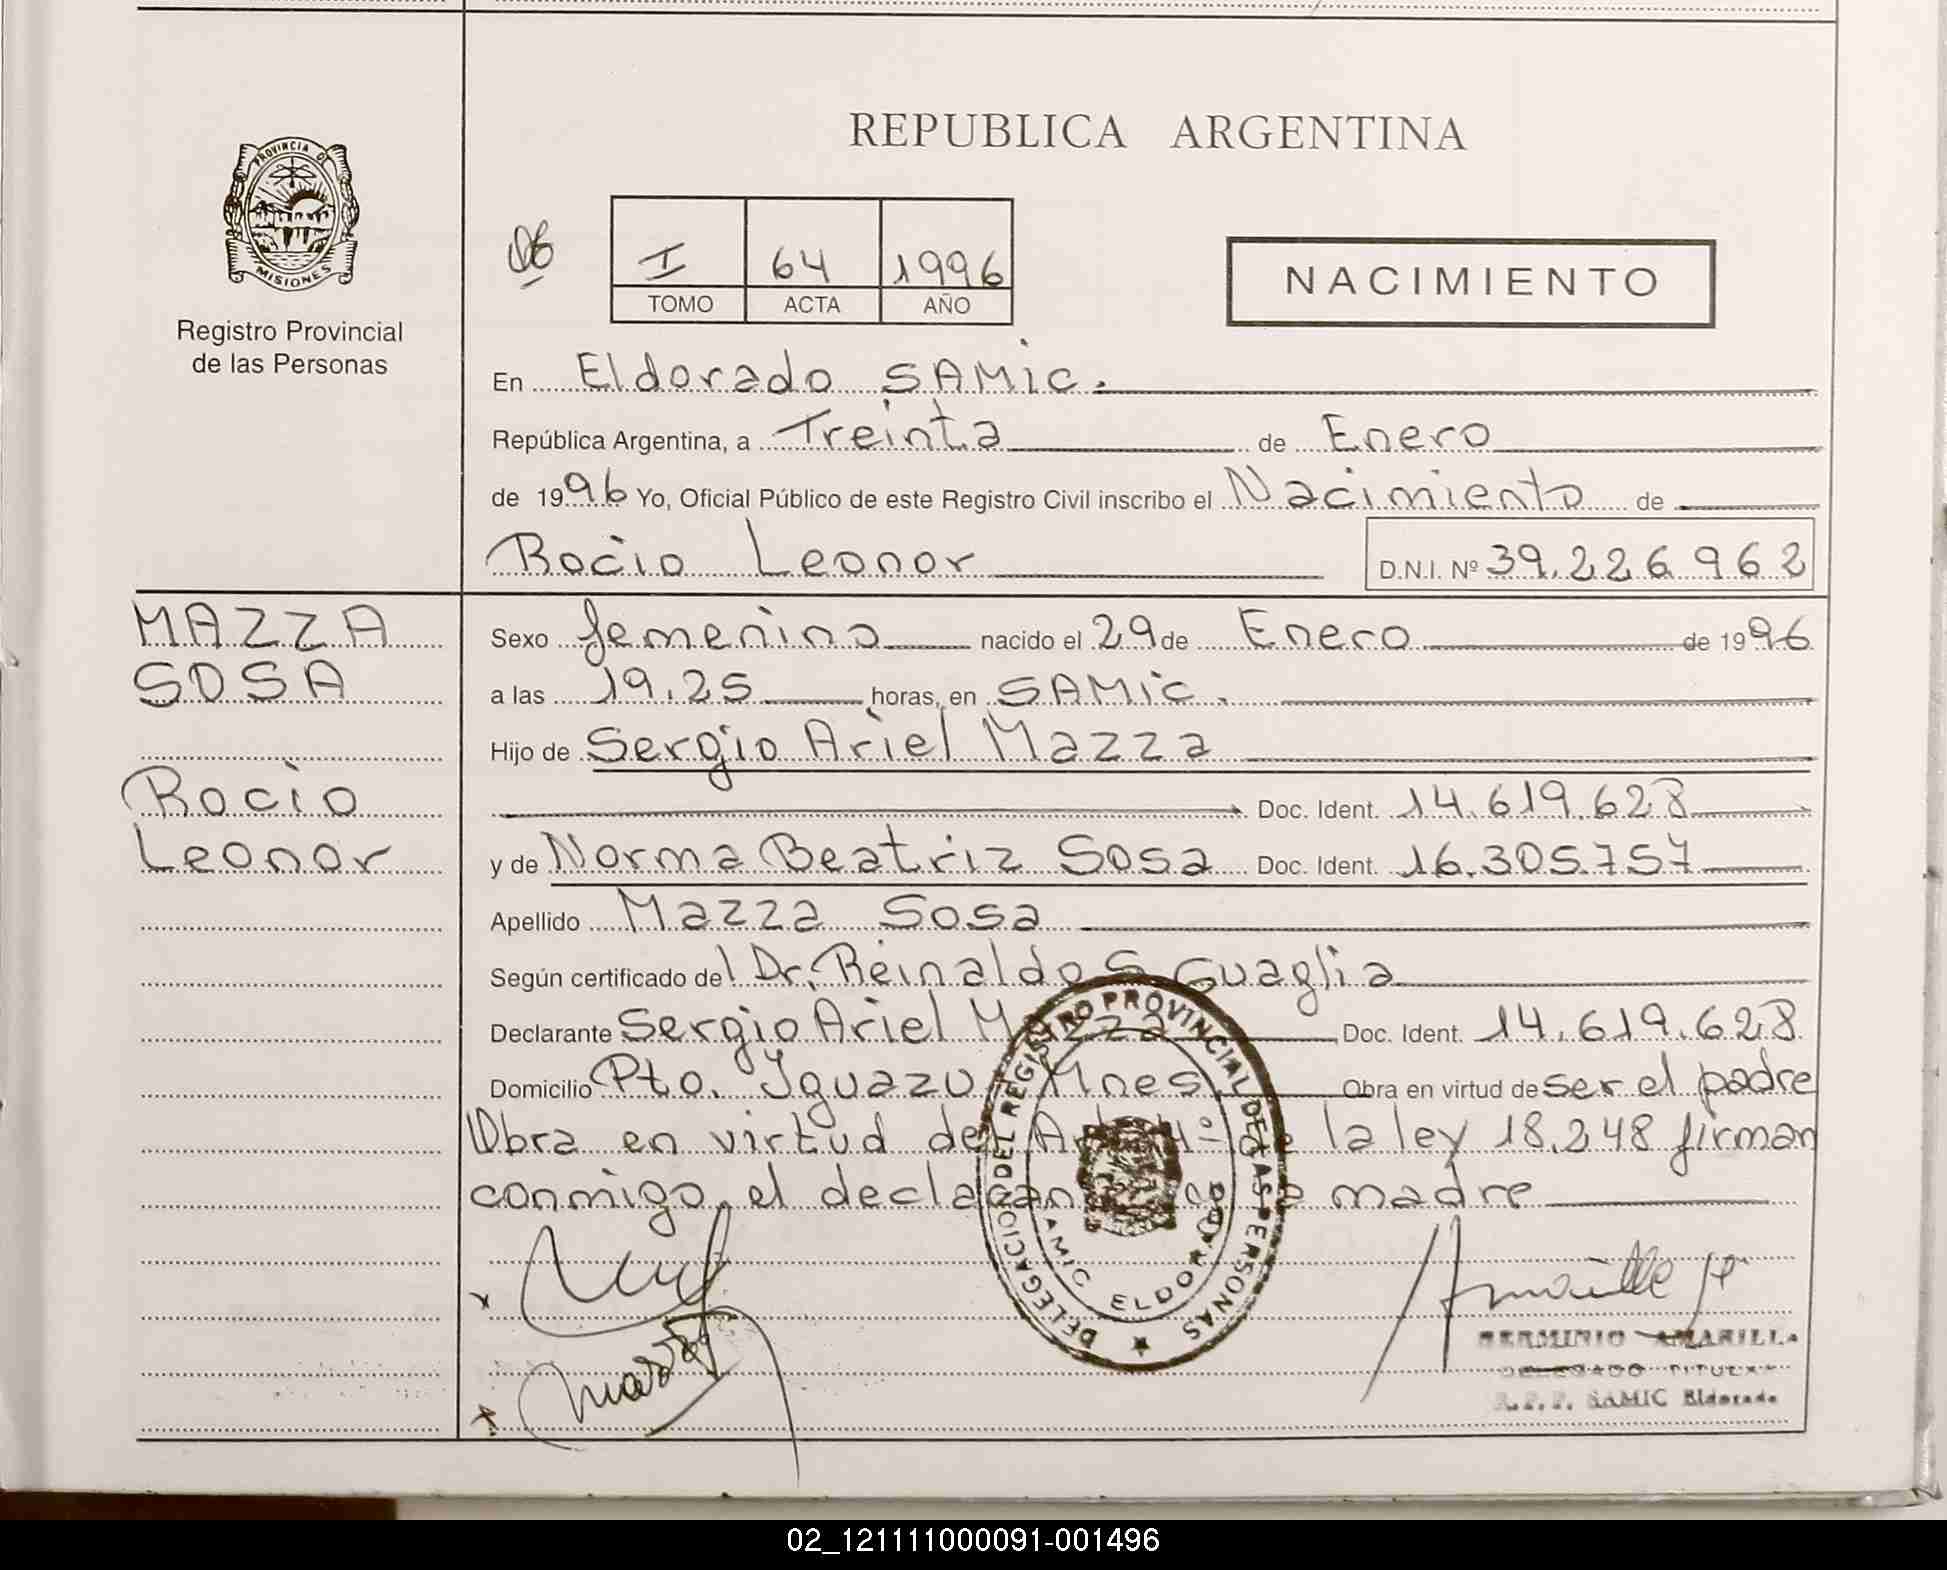 REPUBLICA ARGENTINA
PROVINCIA DE
MISIONES
Registro Provincial
de las Personas
I 64 1996
TOMO ACTA AÑO
NACIMIENTO
En Eldorado SAMic.
República Argentina, a Treinta de Enero
de 1996 Yo, Oficial Público de este Registro Civil inscribo el Nacimiento de
Rocio Leonor D.N.I. Nº 39.226.962
MAZZA
SOSA
Rocio
Leonor
Sexo femenino nacido el 29 de Enero de 1996
a las 19.25 horas, en SAMic.
Hijo de Sergio Ariel Mazza
Doc. Ident. 14.619.628
y de Norma Beatriz Sosa Doc. Ident. 16.305.757
Apellido Mazza Sosa
Según certificado del Dr. Reinaldo S Guaglia
Declarante Sergio Ariel Mazza Doc. Ident. 14.619.628
Domicilio Pto. Iguazu Mnes Obra en virtud de ser el padre
Obra en virtud del Art 4º de la ley 18.248 firman
conmigo el declarante madre
DELEGACION DEL REGISTRO PROVINCIAL DE LAS PERSONAS
SAMIC ELDORADO
HERMINIO AMARILLA
DELEGADO TITULAR
R.P.P. SAMIC Eldorado
02_121111000091-001496